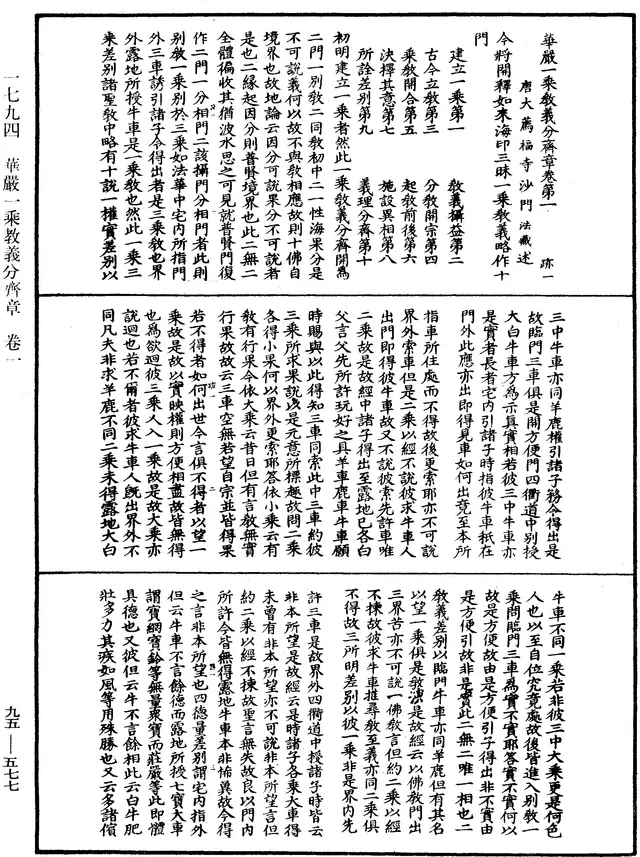 華嚴一乘教義分齊章卷第一　跡一
唐大薦福寺沙門　法藏述
今將開釋如來海印三昧一乘教義略作十
門
建立一乘第一　教義攝益第二
古今立教第三　分教開宗第四
乘教開合第五　起教前後第六
決擇其意第七　施設異相第八
所詮差別第九　義理分齊第十
初明建立一乘者然此一乘教義分齊開為
二門一別教二同教初中二一性海果分是
不可說義何以故不與教相應故則十佛自
境界也故地論云因分可說果分不可說者
是也二緣起因分則普賢境界也此二無二
全體徧收其猶波水思之可見就普賢門復
作二門一分相門二該攝門分相門者此則
別教一乘別於三乘如法華中宅內所指門
外三車誘引諸子令得出者是三乘教也界
外露地所授牛車是一乘教也然此一乘三
乘差別諸聖教中略有十說一權實差別以
三中牛車亦同羊鹿權引諸子務令得出是
故臨門三車俱是開方便門四衢道中別授
大白牛車方為示真實相若彼三中牛車亦
是實者長者宅內引諸子時指彼牛車秖在
門外此應亦出即得見車如何出竟至本所
指車所住處而不得故後更索耶亦不可說
界外索車但是二乘以經不說彼求牛車人
出門即得彼牛車故又不說彼索先許車唯
二乘故是故經中諸子得出至露地已各白
父言父先所許玩好之具羊車鹿車牛車願
時賜與以此得知三車同索此中三車約彼
三乘所求果說以是元意所標趣故問二乘
各得小果何以界外更索耶答依小乘云有
教有行果今依大乘云昔日但有言教無實
行果故故云三車空無若望自宗並皆得果
若不得者如何出世今言俱不得者以望一
乘故是故以實映權則方便相盡故皆無得
也為欲迴彼三乘人入一乘故是故大乘亦
說迴也若不爾者彼求牛車人既出界外不
同凡夫非求羊鹿不同二乘未得露地大白
牛車不同一乘若非彼三中大乘更是何色
人也以至自位究竟處故後皆進入別教一
乘問臨門三車為實不實耶答實不實何以
故是方便故由是方便引子得出非不實由
是方便引故非是實此二無二唯一相也二
教義差別以臨門牛車亦同羊鹿但有其名
以望一乘俱是教洩是故經云以佛教門出
三界苦亦不可說一佛教言但約二乘以經
不揀故彼求牛車推尋教至義亦同二乘俱
不得故三所明差別以彼一乘非是界內先
許三車是故界外四衢道中授諸子時皆云
非本所望是故經云是時諸子各乘大車得
未曾有非本所望亦不可說非本所望言但
約二乘以經不揀故聖言無失故良以門內
所許今皆無得露地牛車本非悕異故今得
之言非本所望也四德量差別謂宅內指外
但云牛車不言餘德而露地所授七寶大車
謂寶網寶鈴等無量衆寶而莊嚴等此即體
具德也又彼但云牛不言餘相此云白牛肥
壯多力其疾如風等用殊勝也又云多諸儐
一七九四　華嚴一乘教義分齊章　卷一
九五—五七七